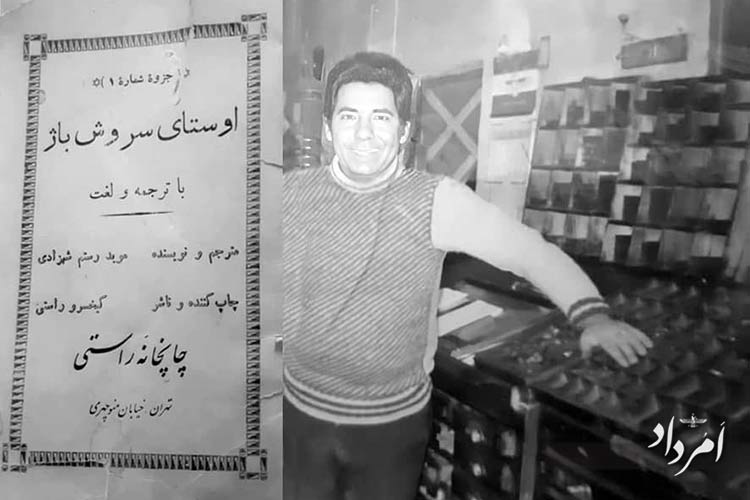 جزوهٔ شمارهٔ ۱
اوستای سروش باژ
با ترجمه و لغت
مترجم و نویسنده موبد رستم شهزادی
چاپ کننده و ناشر کیخسرو راستی
چاپخانه راستی
تهران خیابان منوچهری
اَمرداد